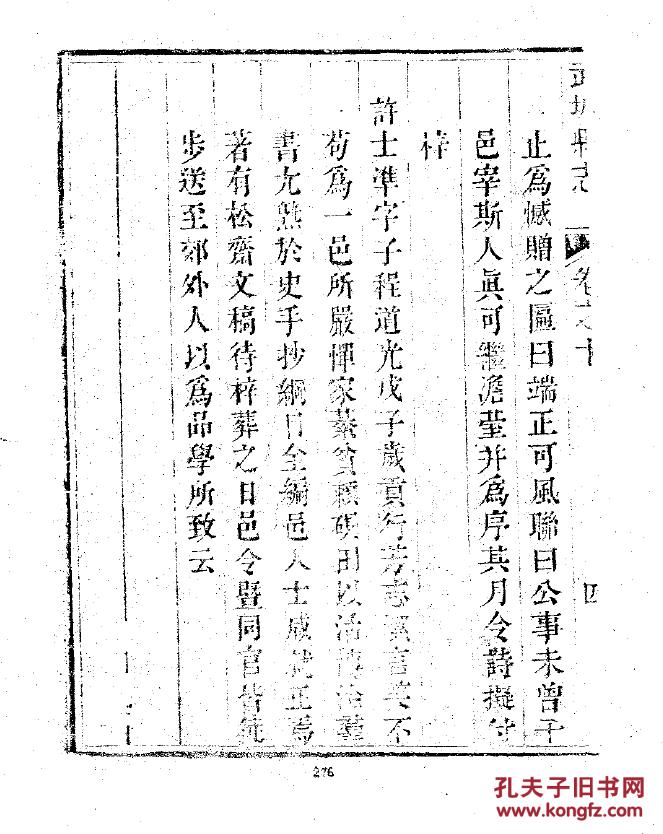 武城縣志 卷之十 四
止爲憾贈之匾曰端正可風聯曰公事未曾干
邑宰斯人眞可繼澹臺并爲序其月令詩擬付
梓
許士準字子程道光戊子歲貢行芳志潔言笑不
苟爲一邑所嚴憚家綦貧賴硯田以活博洽羣
書尢熟於史手抄綱目全編邑人士咸就正焉
著有松齋文稿待梓葬之日邑令暨同官皆徒
步送至郊外人以爲品學所致云
276
孔夫子旧书网
www.kongfz.com